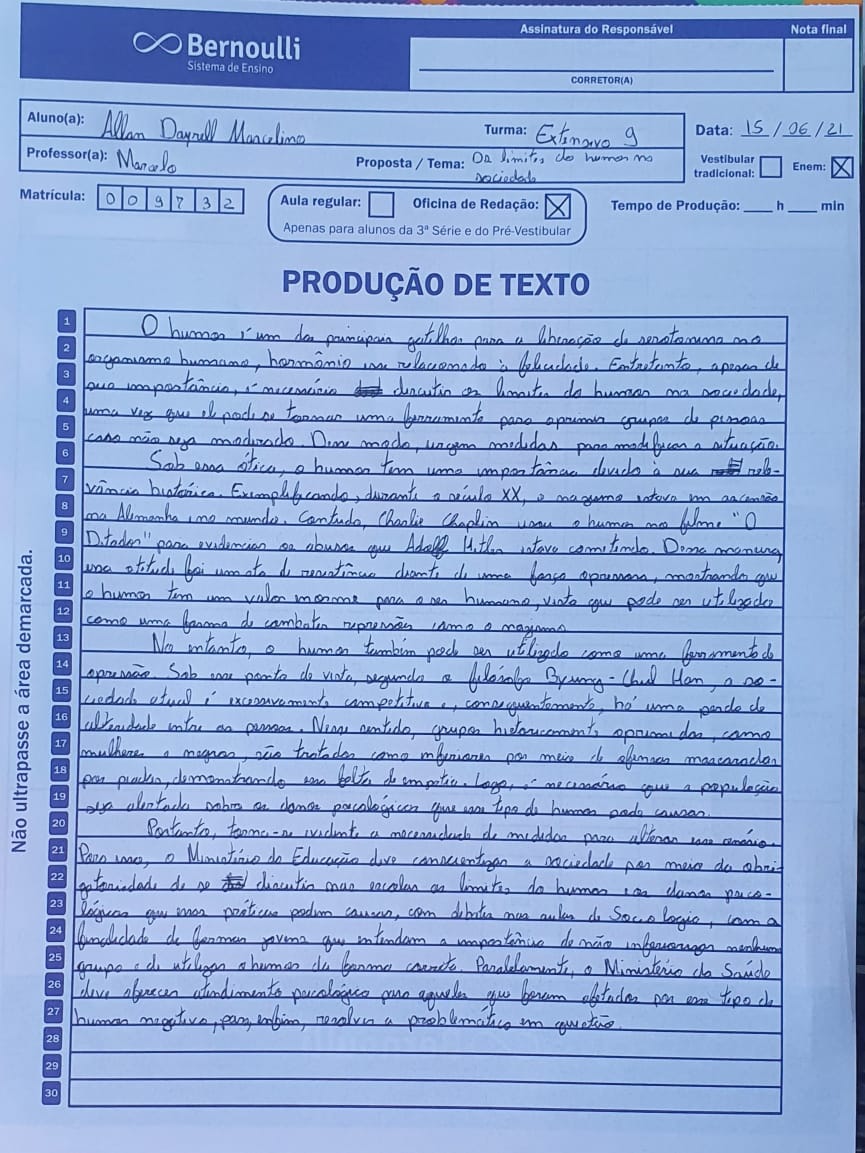 Bernoulli
Sistema de Ensino
Assinatura do Responsável
Nota final
CORRETOR(A)
Aluno(a): Allan Dayrell Marcelino
Turma: Extensivo 9
Data: 15/06/21
Professor(a): Marcelo
Proposta / Tema: Os limites do humor na sociedade
Vestibular tradicional:
Enem: X
Matrícula: 009732
Aula regular:
Oficina de Redação: X
Tempo de Produção: ___ h ___ min
Apenas para alunos da 3ª Série e do Pré-Vestibular
PRODUÇÃO DE TEXTO
Não ultrapasse a área demarcada.
1 O humor é um dos principais gatilhos para a liberação de serotonina no
2 organismo humano, hormônio esse relacionado à felicidade. Entretanto, apesar de
3 sua importância, é necessário discutir os limites do humor na sociedade,
4 uma vez que ele pode se tornar uma ferramenta para oprimir grupos de pessoas
5 caso não seja moderado. Desse modo, urgem medidas para modificar a situação.
6 Sob essa ótica, o humor tem uma importância devido à sua rele-
7 vância histórica. Exemplificando, durante o século XX, o nazismo estava em ascensão
8 na Alemanha e no mundo. Contudo, Charlie Chaplin usou o humor no filme "O
9 Ditador" para evidenciar os abusos que Adolf Hitler estava cometendo. Dessa maneira,
10 essa atitude foi um ato de resistência diante de uma força opressora, mostrando que
11 o humor tem um valor enorme para o ser humano, visto que pode ser utilizado
12 como uma forma de combater repressões como o nazismo.
13 No entanto, o humor também pode ser utilizado como uma ferramenta de
14 opressão. Sob esse ponto de vista, segundo o filósofo Byung-Chul Han, a so-
15 ciedade atual é excessivamente competitiva e, consequentemente, há uma perda de
16 alteridade entre as pessoas. Nesse sentido, grupos historicamente oprimidos, como
17 mulheres e negros, são tratados como inferiores por meio de ofensas mascaradas
18 por piadas, demonstrando essa falta de empatia. Logo, é necessário que a população
19 seja alertada sobre os danos psicológicos que esse tipo de humor pode causar.
20 Portanto, torna-se evidente a necessidade de medidas para alterar esse cenário.
21 Para isso, o Ministério da Educação deve conscientizar a sociedade por meio da obri-
22 gatoriedade de se discutir nas escolas os limites do humor e os danos psico-
23 lógicos que essas práticas podem causar, com debates nas aulas de Sociologia, com a
24 finalidade de formar jovens que entendam a importância de não inferiorizar nenhum
25 grupo e de utilizar o humor da forma correta. Paralelamente, o Ministério da Saúde
26 deve oferecer atendimento psicológico para aqueles que foram afetados por esse tipo de
27 humor negativo, para, enfim, resolver a problemática em questão.
28
29
30